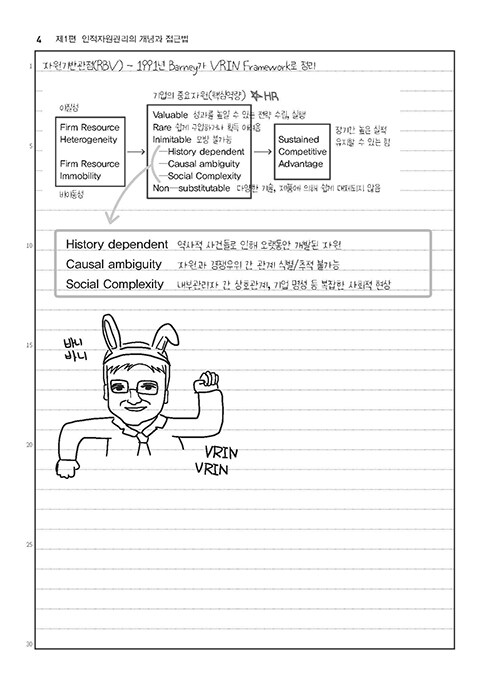 4 제1편 인적자원관리의 개념과 접근법
1
자원기반관점(RBV) - 1991년 Barney가 VRIN Framework로 정리
기업의 중요자원(핵심역량) ★HR
이질성
Valuable 성과를 높일 수 있는 전략 수립, 실행
Firm Resource
Heterogeneity
Rare 쉽게 구입하거나 획득 어려움
Inimitable 모방 불가능
5
History dependent
Causal ambiguity
Social Complexity
Firm Resource
Immobility
Sustained
Competitive
Advantage
장기간 높은 실적
유지할 수 있는 힘
비이동성
Non-substitutable 다양한 기술, 제품에 의해 쉽게 대체되지 않음
10
History dependent 역사적 사건들로 인해 오랫동안 개발된 자원
Causal ambiguity 자원과 경쟁우위 간 관계 식별/추적 불가능
Social Complexity 내부관리자 간 상호관계, 기업 명성 등 복잡한 사회적 현상
15
바니
바니
20
VRIN
VRIN
25
30